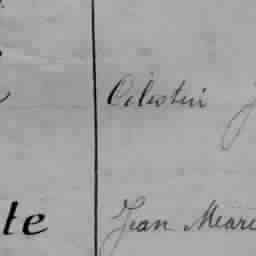 Celestin J
te Jean Marc